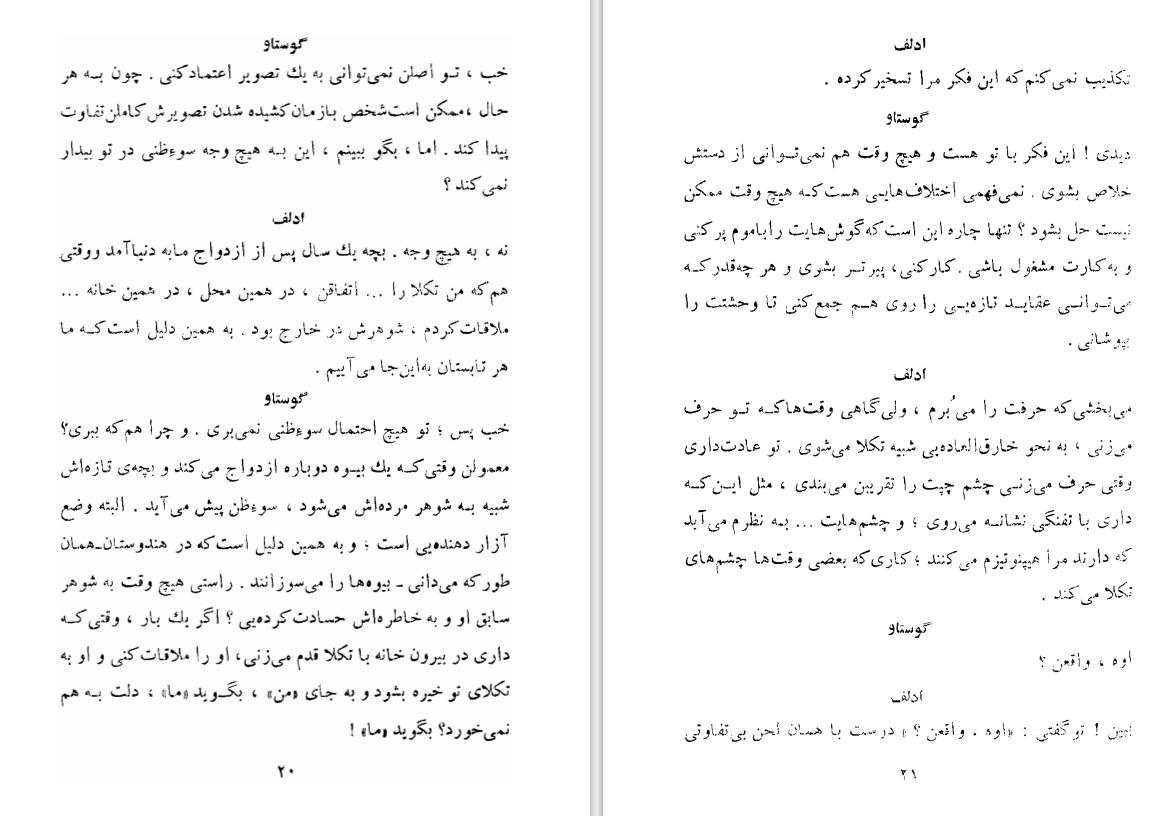 گوستاو
خب ، تـو اصلن نمی‌توانی به یك تصویر اعتمادکنی . چون بـه هر
حال ، ممکن است‌شخص بازمان‌کشیده شدن تصویرش‌کاملن‌تفاوت
پیدا کند . اما ، بگو ببینم ، این بـه هیچ وجه سوءِظنی در تو بیدار
نمی‌کند ؟
ادلف
نه ، به هیچ وجه . بچه یك سال پس از ازدواج مابه دنیاآمد ووقتی
هم‌که من تکلا را ... اتفاقن ، در همین محل ، در همین خانه ...
ملاقات‌کردم ، شوهرش در خارج بود . به همین دلیل است‌کـه ما
هر تابستان به‌این‌جا می‌آییم .
گوستاو
خب پس ؛ تو هیچ احتمال سوءِظنی نمی‌بری . و چرا هم‌که ببری؟
معمولن وقتی‌کـه یك بیـوه دوباره ازدواج می‌کند و بچه‌ی تازه‌اش
شبیه بـه شوهر مرده‌اش می‌شود ، سوءِظن پیش می‌آید . البته وضع
آزار دهنده‌یی است ؛ و به همین دلیل است‌که در هندوستان-همان
طورکه می‌دانی - بیوه‌ها را می‌سوزانند . راستی هیچ وقت به شوهر
سابق او و به خاطره‌اش حسادت‌کرده‌یی ؟ اگر یك بار ، وقتی‌کـه
داری در بیرون خانه با تکلا قدم می‌زنی، او را ملاقات‌کنی و او به
تکلای تو خیره بشود و به جای «من» ، بگـوید «ما» ، دلت بـه هم
نمی‌خورد؟ بگوید «ما» !
۲۰
ادلف
تکذیب نمی‌کنم‌که این فکر مرا تسخیرکرده .
گوستاو
دیدی ! این فکر با تو هست و هیچ وقت هم نمی‌تـوانی از دستش
خلاص بشوی . نمی‌فهمی اختلاف‌هایـی هست‌کـه هیچ وقت ممکن
نیست حل بشود ؟ تنها چاره این است‌که‌گوش‌هایت راباموم پرکنی
و به‌کارت مشغول باشی . کارکنی، پیرتـر بشوی و هر چه‌قدرکـه
می‌تـوانـی عقایـد تازه‌یـی را روی هـم جمع‌کنی تا وحشتت را
بپوشانی .
ادلف
می‌بخشی‌که حرفت را می‌بُرم ، ولی‌گاهی وقت‌هاکـه تـو حرف
می‌زنی ، به نحو خارق‌العاده‌یی شبیه تکلا می‌شوی . تو عادت‌داری
وقتی حرف می‌زنـی چشم چپت را تقریبن می‌بندی ، مثل ایـن‌کـه
داری با تفنگی نشانـه می‌روی ؛ و چشم‌هایت ... بـه نظرم می‌آید
که دارند مرا هیپنوتیزم می‌کنند ؛ کاری‌که بعضی وقت‌ها چشم‌های
تکلا می‌کند .
گوستاو
اوه ، واقعن ؟
ادلف
ببین ! توگفتی : «اوه ، واقعن ؟ » درست با همان لحن بی‌تفاوتی
۲۱